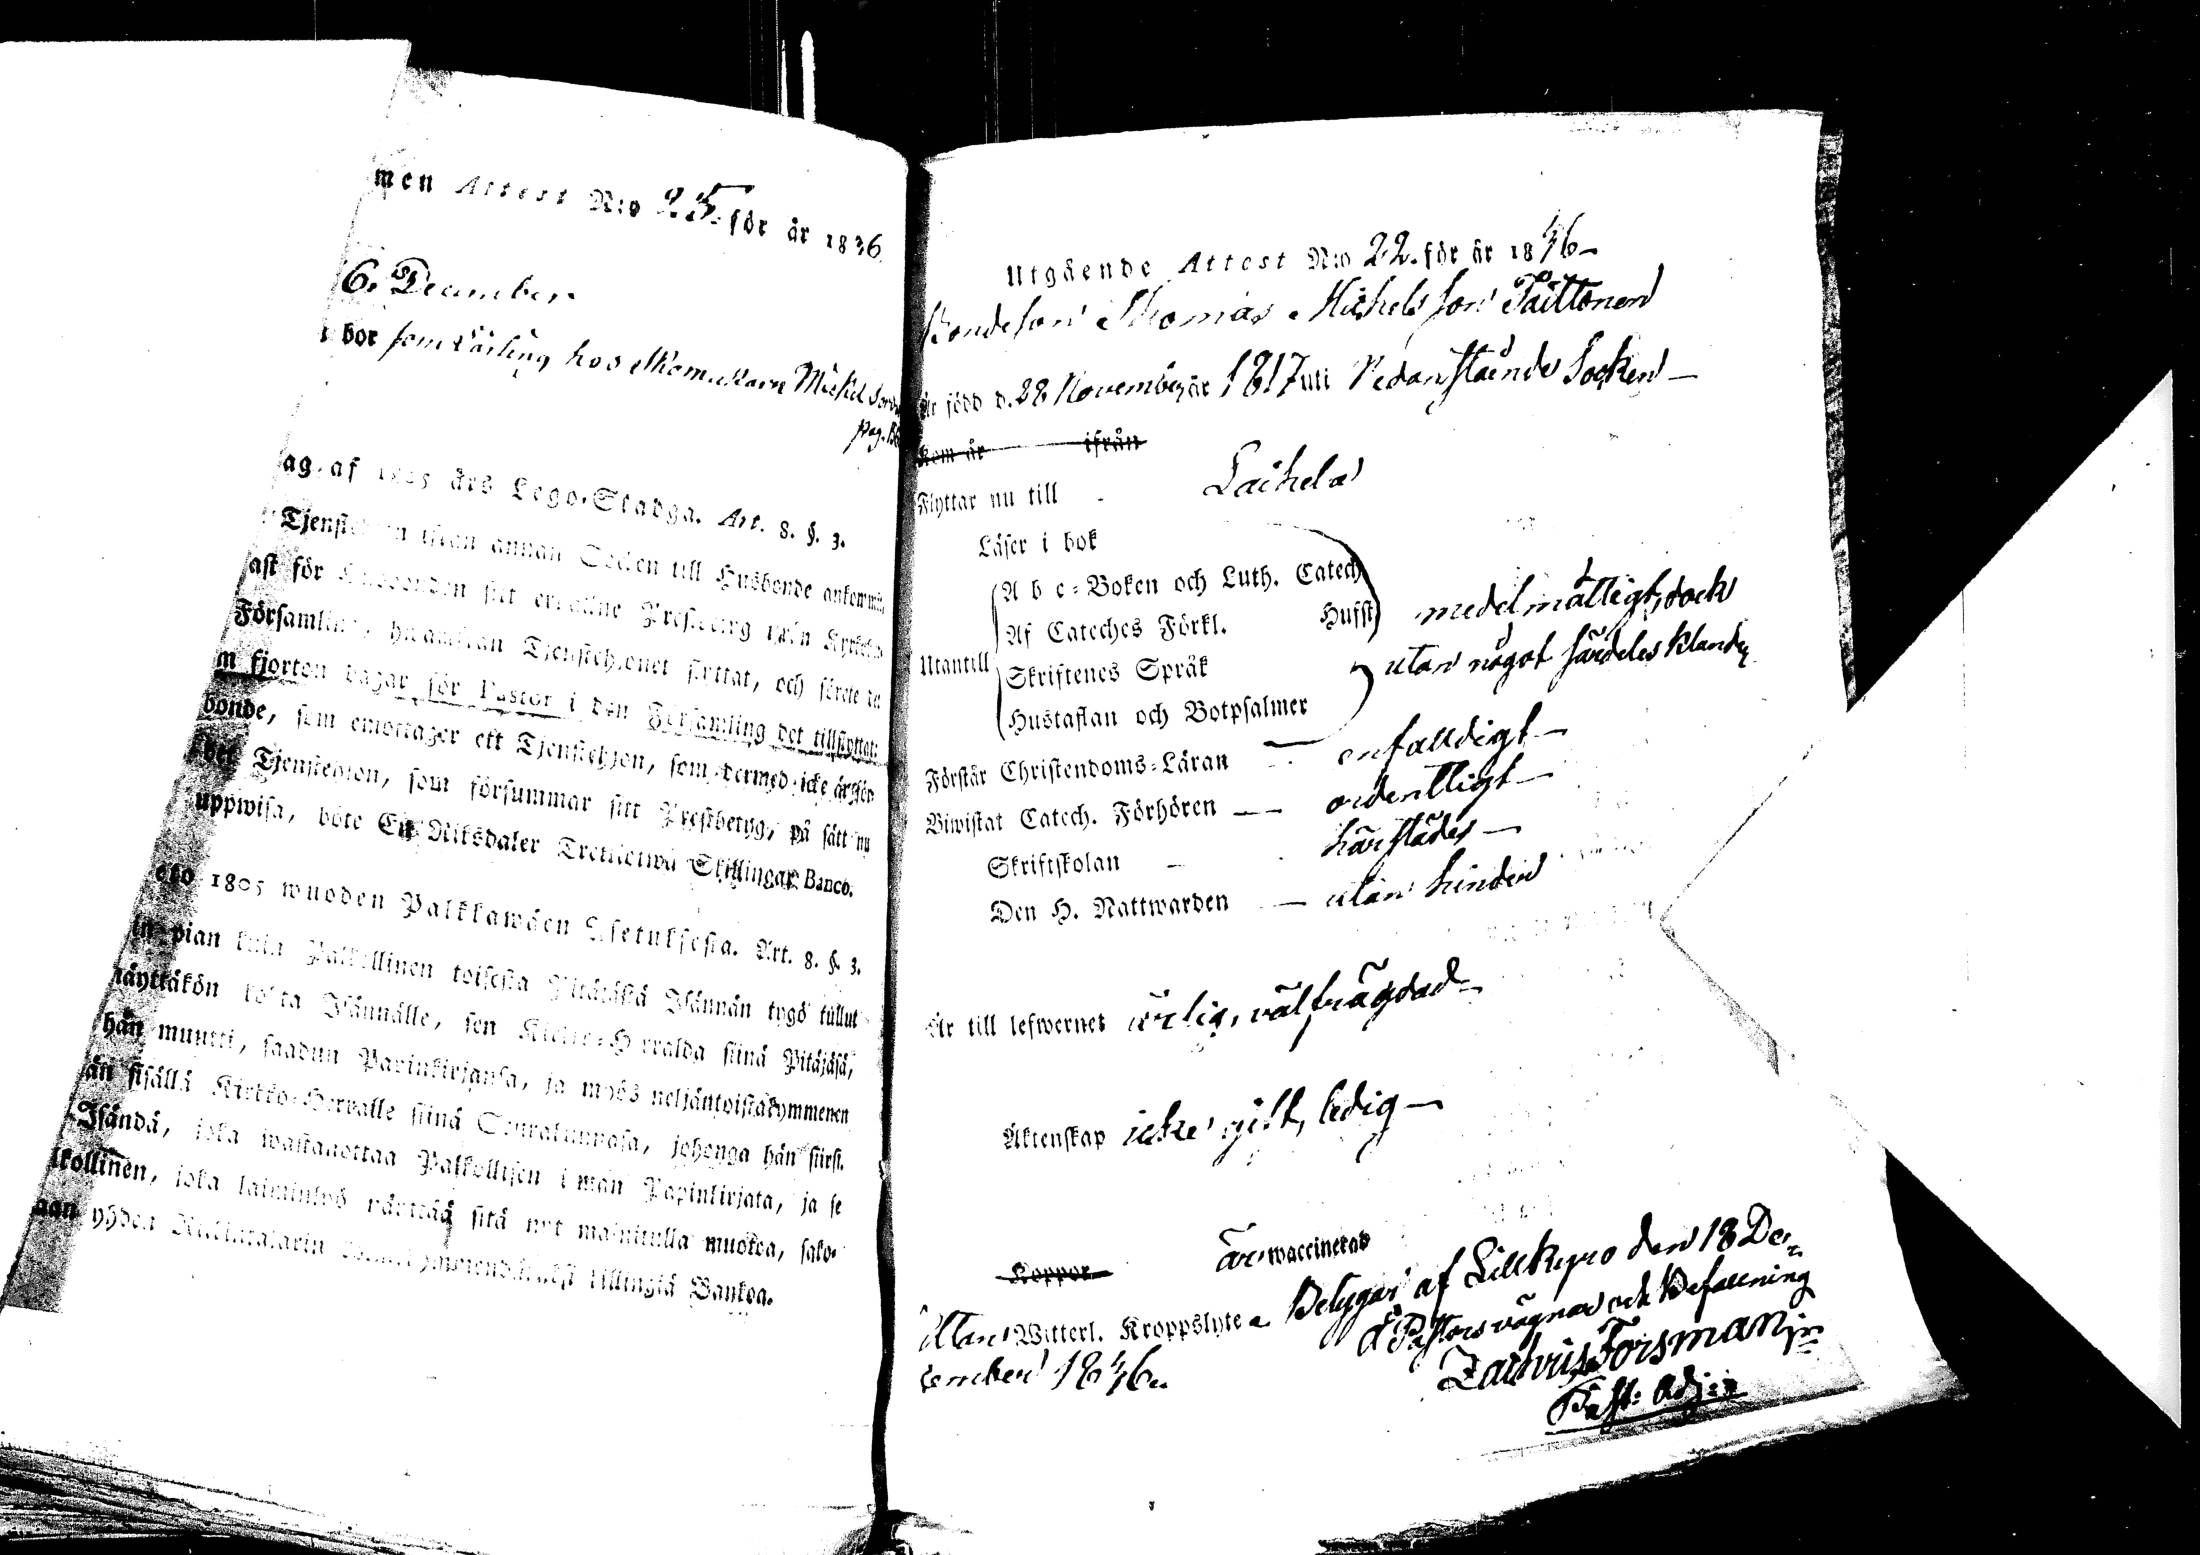 men Attest N:o 25. för år 1836.
6. December.
bor som Lärling hos Skomakare Mickel
pag.
ag af 1805 års Lego-Stadga. Art. 8. §. 3.
annan Socken till Husbonde ankommit
ast för
Församling, hwarifrån Tjenstehjonet flyttat, och sedan
m fjorton dagar för Pastor i den Församling det tillflyttat:
bonde, som emottager ett Tjenstehjon, som dermed icke är
Tjenstehjon, som försummar sitt Prestbetyg, på sätt nu
uppwisa, böte En Riksdaler Trettiotwå Skillingar Banco.
1805 wuoden Palkkawäen Asetuksesta. Art. 8. §. 3.
in pian kuin Palkollinen toisesta Pitäjästä Isännän tygö tullut
näyttäkön Isännälle, sen Kirkko-Herralda siinä Pitäjäsä,
hän muutti, saadun Papinkirjansa, ja myös neljäntoistakymmenen
än sisällä Kirkko-Herralle siinä Seurakunnasa, johonga hän siirsi.
Isändä, joka wastaanottaa Palkollisen ilman Papinkirjata, ja se
lkollinen, joka laiminlyö näyttää sitä nyt mainitulla muotoa, sako-
aan yhden Killingiä Bankoa.
Utgående Attest N:o 22. för år 1836 –
Bondeson Thomas Michelsson Päittonen
Är född d. 28 November år 1817 uti Nedanstående Socken –
Kom år ifrån
Flyttar nu till Laihela
Läser i bok
A b c-Boken och Luth. Catech
Af Cateches Förkl. Hufst medelmåttigt, dock
Utantill Skriftenes Språk utan något särdeles klander
Hustaflan och Botpsalmer
Förstår Christendoms-Läran – enfalldigt –
Biwistat Catech. Förhören – ordentligt –
Skriftskolan – härstädes –
Den H. Nattwarden – utan hinder
Är till lefwernet ärlig, välfrägdad –
Äktenskap icke gift, ledig –
Koppor är waccinerad
Utan Witterl. Kroppslyte. Betygar af Lillkyro den 18 De-
cember 1836.
å Pastors vägnar och Befallning
Zachris Forsman jr
Past: Adj: